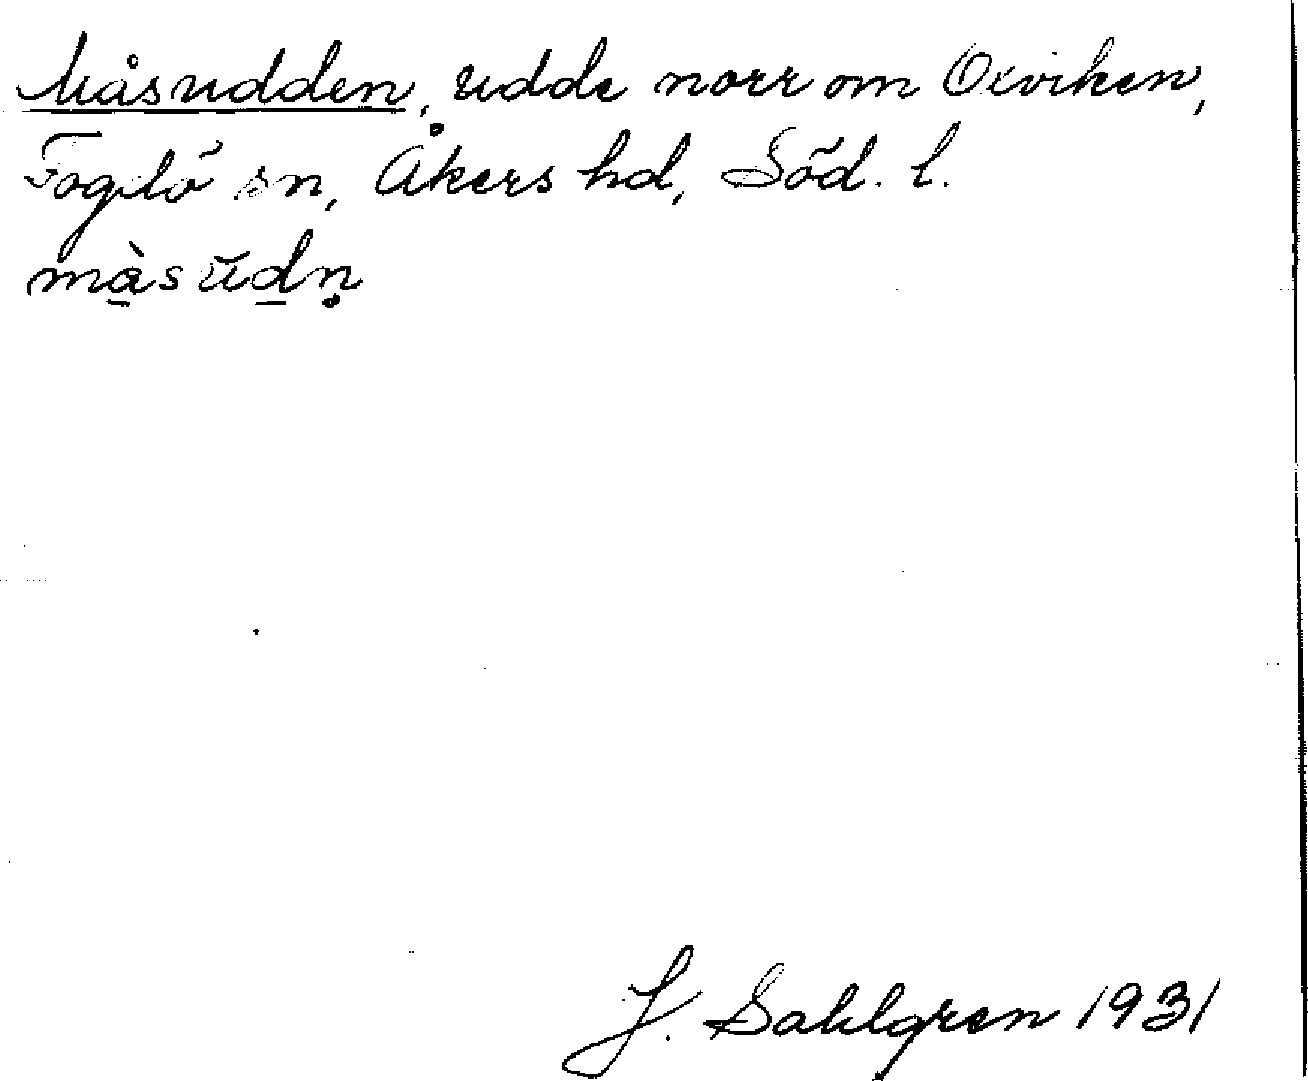 Måsudden, udde norr om Oxviken,
Fogdö sn, Åkers hd, Söd. l.
må̀sŭdṇ
J. Sahlgren 1931